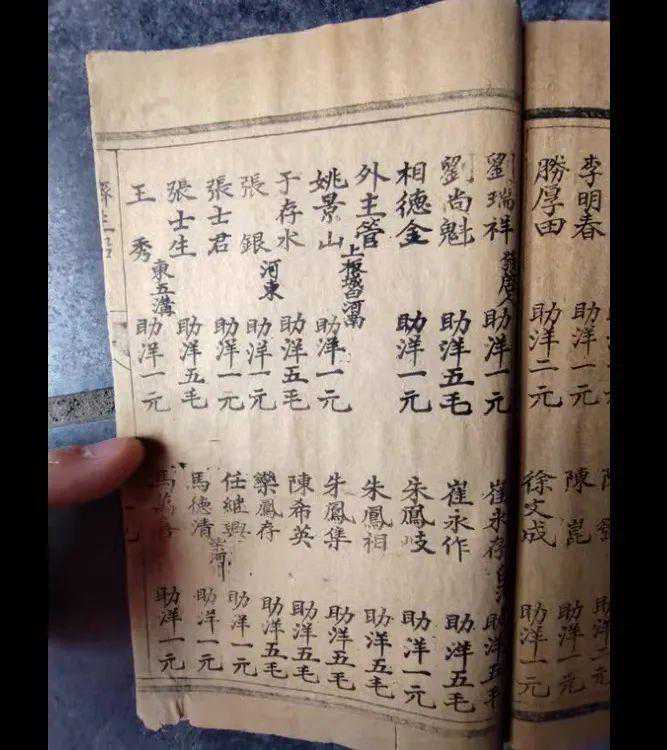 李明春 助洋一元
勝厚田 助洋二元
陳
陳崑 助洋一元
徐文成 助洋一元
劉瑞祥 助洋一元
劉尚魁 助洋五毛
相德金 助洋一元
外主管
上板城白河南
姚景山 助洋一元
于存水 助洋五毛
河東
張銀 助洋一元
張士君 助洋一元
張士生 助洋五毛
東五溝
王秀 助洋一元
崔永存 助洋五毛
崔永作 助洋五毛
朱鳳岐 助洋一元
朱鳳相 助洋五毛
朱鳳集 助洋五毛
陳希英 助洋五毛
欒鳳存 助洋五毛
任継興 助洋一元
河川
馬德清 助洋一元
馬萬 助洋一元